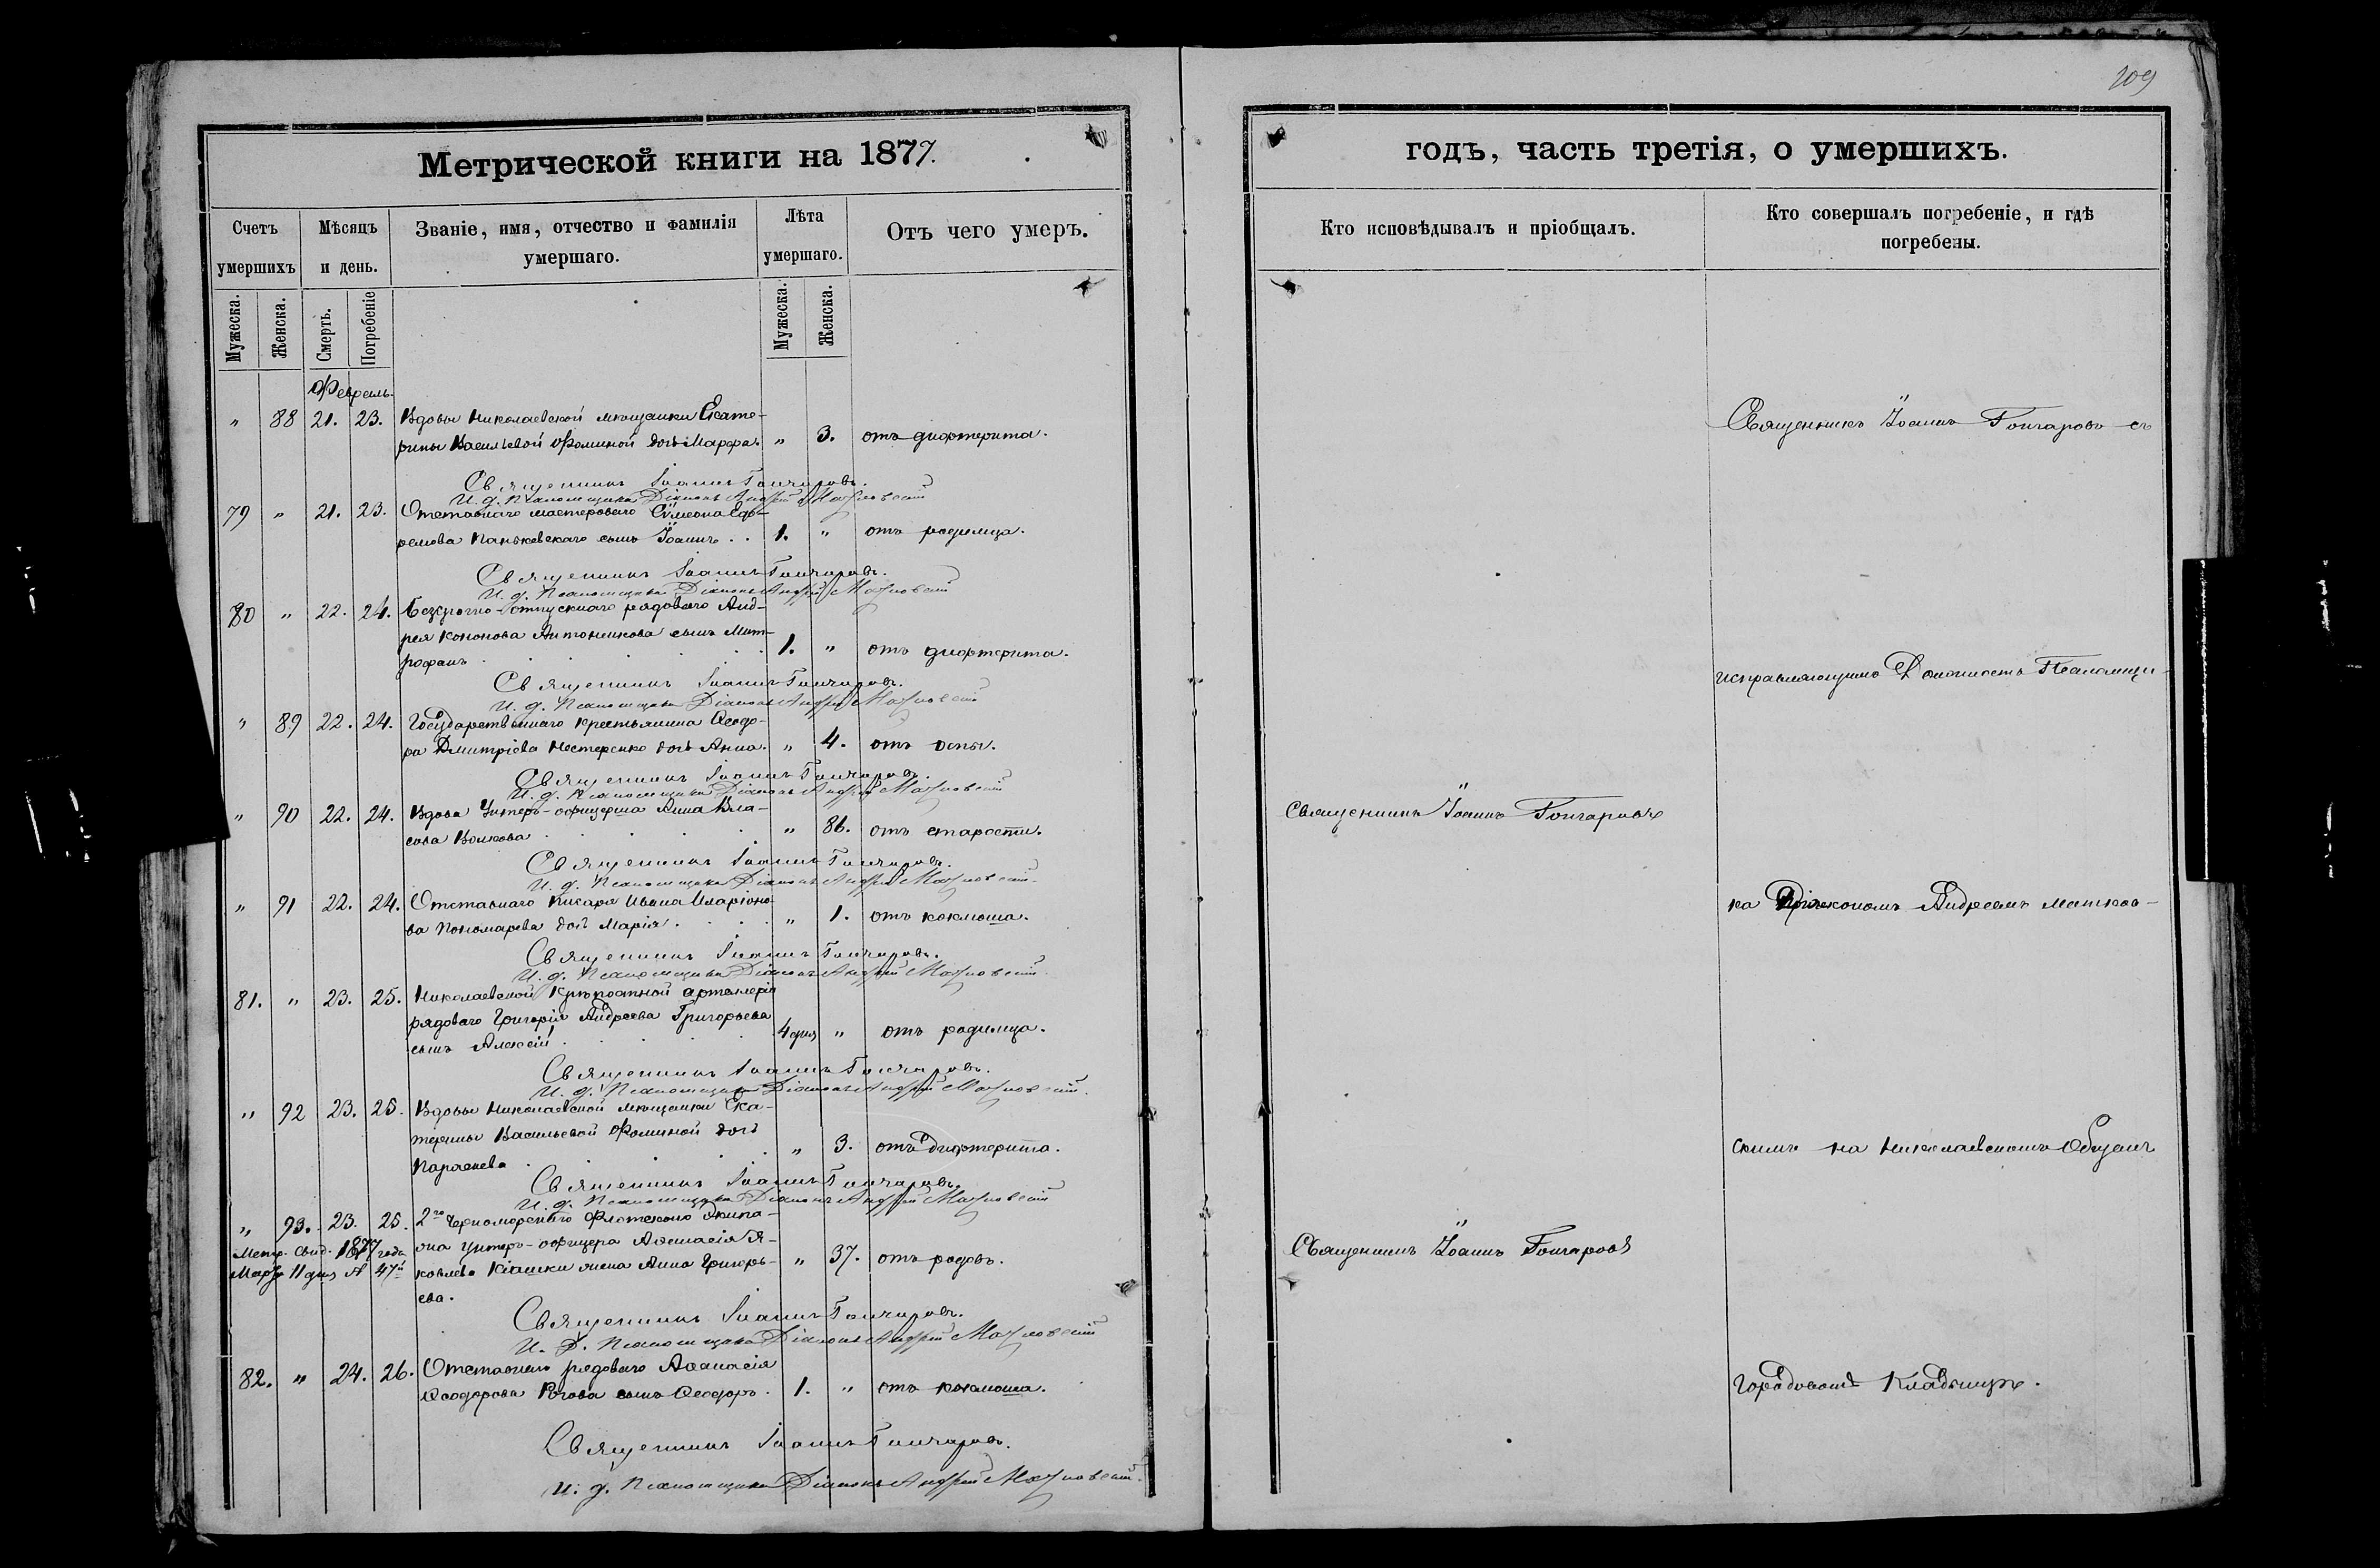 209
Метрической книги на 1877.
годъ, часть третія, о умершихъ.
Счетъ умершихъ
Мѣсяцъ и день.
Званіе, имя, отчество и фамилія умершаго.
Лѣта умершаго.
Отъ чего умеръ.
Кто исповѣдывалъ и пріобщалъ.
Кто совершалъ погребеніе, и гдѣ погребены.
Мужеска.
Женска.
Смерть.
Погребеніе
Мужеска.
Женска.
Февраль.
" 88 21. 23. Вдовы Николаевской мѣщанки Екате-
рины Васильевой Фоминой дочь Марѳа. " 3. отъ дифтерита.
Священникъ Іоаннъ Гончаровъ.
И. д. Псаломщика Діаконъ Андрей
79 " 21. 23. Отставнаго мастероваго Сѵмеона Еф-
ремова Паньковскаго сынъ Іоаннъ. . 1. " отъ родимца.
Священникъ Іоаннъ Гончаровъ.
И. д. Псаломщика Діаконъ Андрей
80 " 22. 24. Безсрочно-отпускнаго рядоваго Анд-
рея Кононова Антоникова сынъ Мит-
рофанъ . . . 1. " отъ дифтерита.
Священникъ Іоаннъ Гончаровъ.
И. д. Псаломщика Діаконъ Андрей
" 89 22. 24. Государственнаго крестьянина Ѳеодо-
ра Дмитріева Нестеренко дочь Анна. " 4. отъ оспы.
Священникъ Іоаннъ Гончаровъ.
И. д. Псаломщика Діаконъ Андрей
" 90 22. 24. Вдова Унтеръ-офицерша Анна Вла-
сова Волкова . . . " 86. отъ старости.
Священникъ Іоаннъ Гончаровъ.
И. д. Псаломщика Діаконъ Андрей
" 91 22. 24. Отставнаго писаря Ивана Иларіоно-
ва Пономарева дочь Марія. . . " 1. отъ коклюша.
Священникъ Іоаннъ Гончаровъ.
И. д. Псаломщика Діаконъ Андрей
81. " 23. 25. Николаевской крѣпостной артилеріи
рядоваго Григорія Андреева Григорьева
сынъ Алексій . . . 4 дня " отъ родимца.
Священникъ Іоаннъ Гончаровъ.
И. д. Псаломщика Діаконъ Андрей
" 92 23. 25. Вдовы Николаевской мѣщанки Ека-
терины Васильевой Фоминой дочь
. . . " 3. отъ дифтерита.
Священникъ Іоаннъ Гончаровъ.
И. д. Псаломщика Діаконъ Андрей
" 93. 23. 25. 2го Черноморскаго Флотскаго Экипа-
Метр. Свид. 1877 года
жа унтеръ-офицера Аѳанасія Я-
Марта 11 дня № 47й
ковлева Кіашки жена Анна Григорь- " 37. отъ родовъ.
ева.
Священникъ Іоаннъ Гончаровъ.
И. Д. Псаломщика Діаконъ Андрей
82. " 24. 26. Отставнаго рядоваго Аѳанасія
Ѳеодорова Рогова сынъ Ѳеодоръ. 1. " отъ коклюша.
Священникъ Іоаннъ Гончаровъ.
И. д. Псаломщика Діаконъ Андрей
Священникъ Іоаннъ Гончаровъ
Священникъ Іоаннъ Гончаровъ
Священникъ Іоаннъ Гончаровъ съ
исправляющимъ Должность Псаломщи-
ка Діакономъ Андреемъ
скимъ на Николаевскомъ Общемъ
Городскомъ Кладбищѣ.